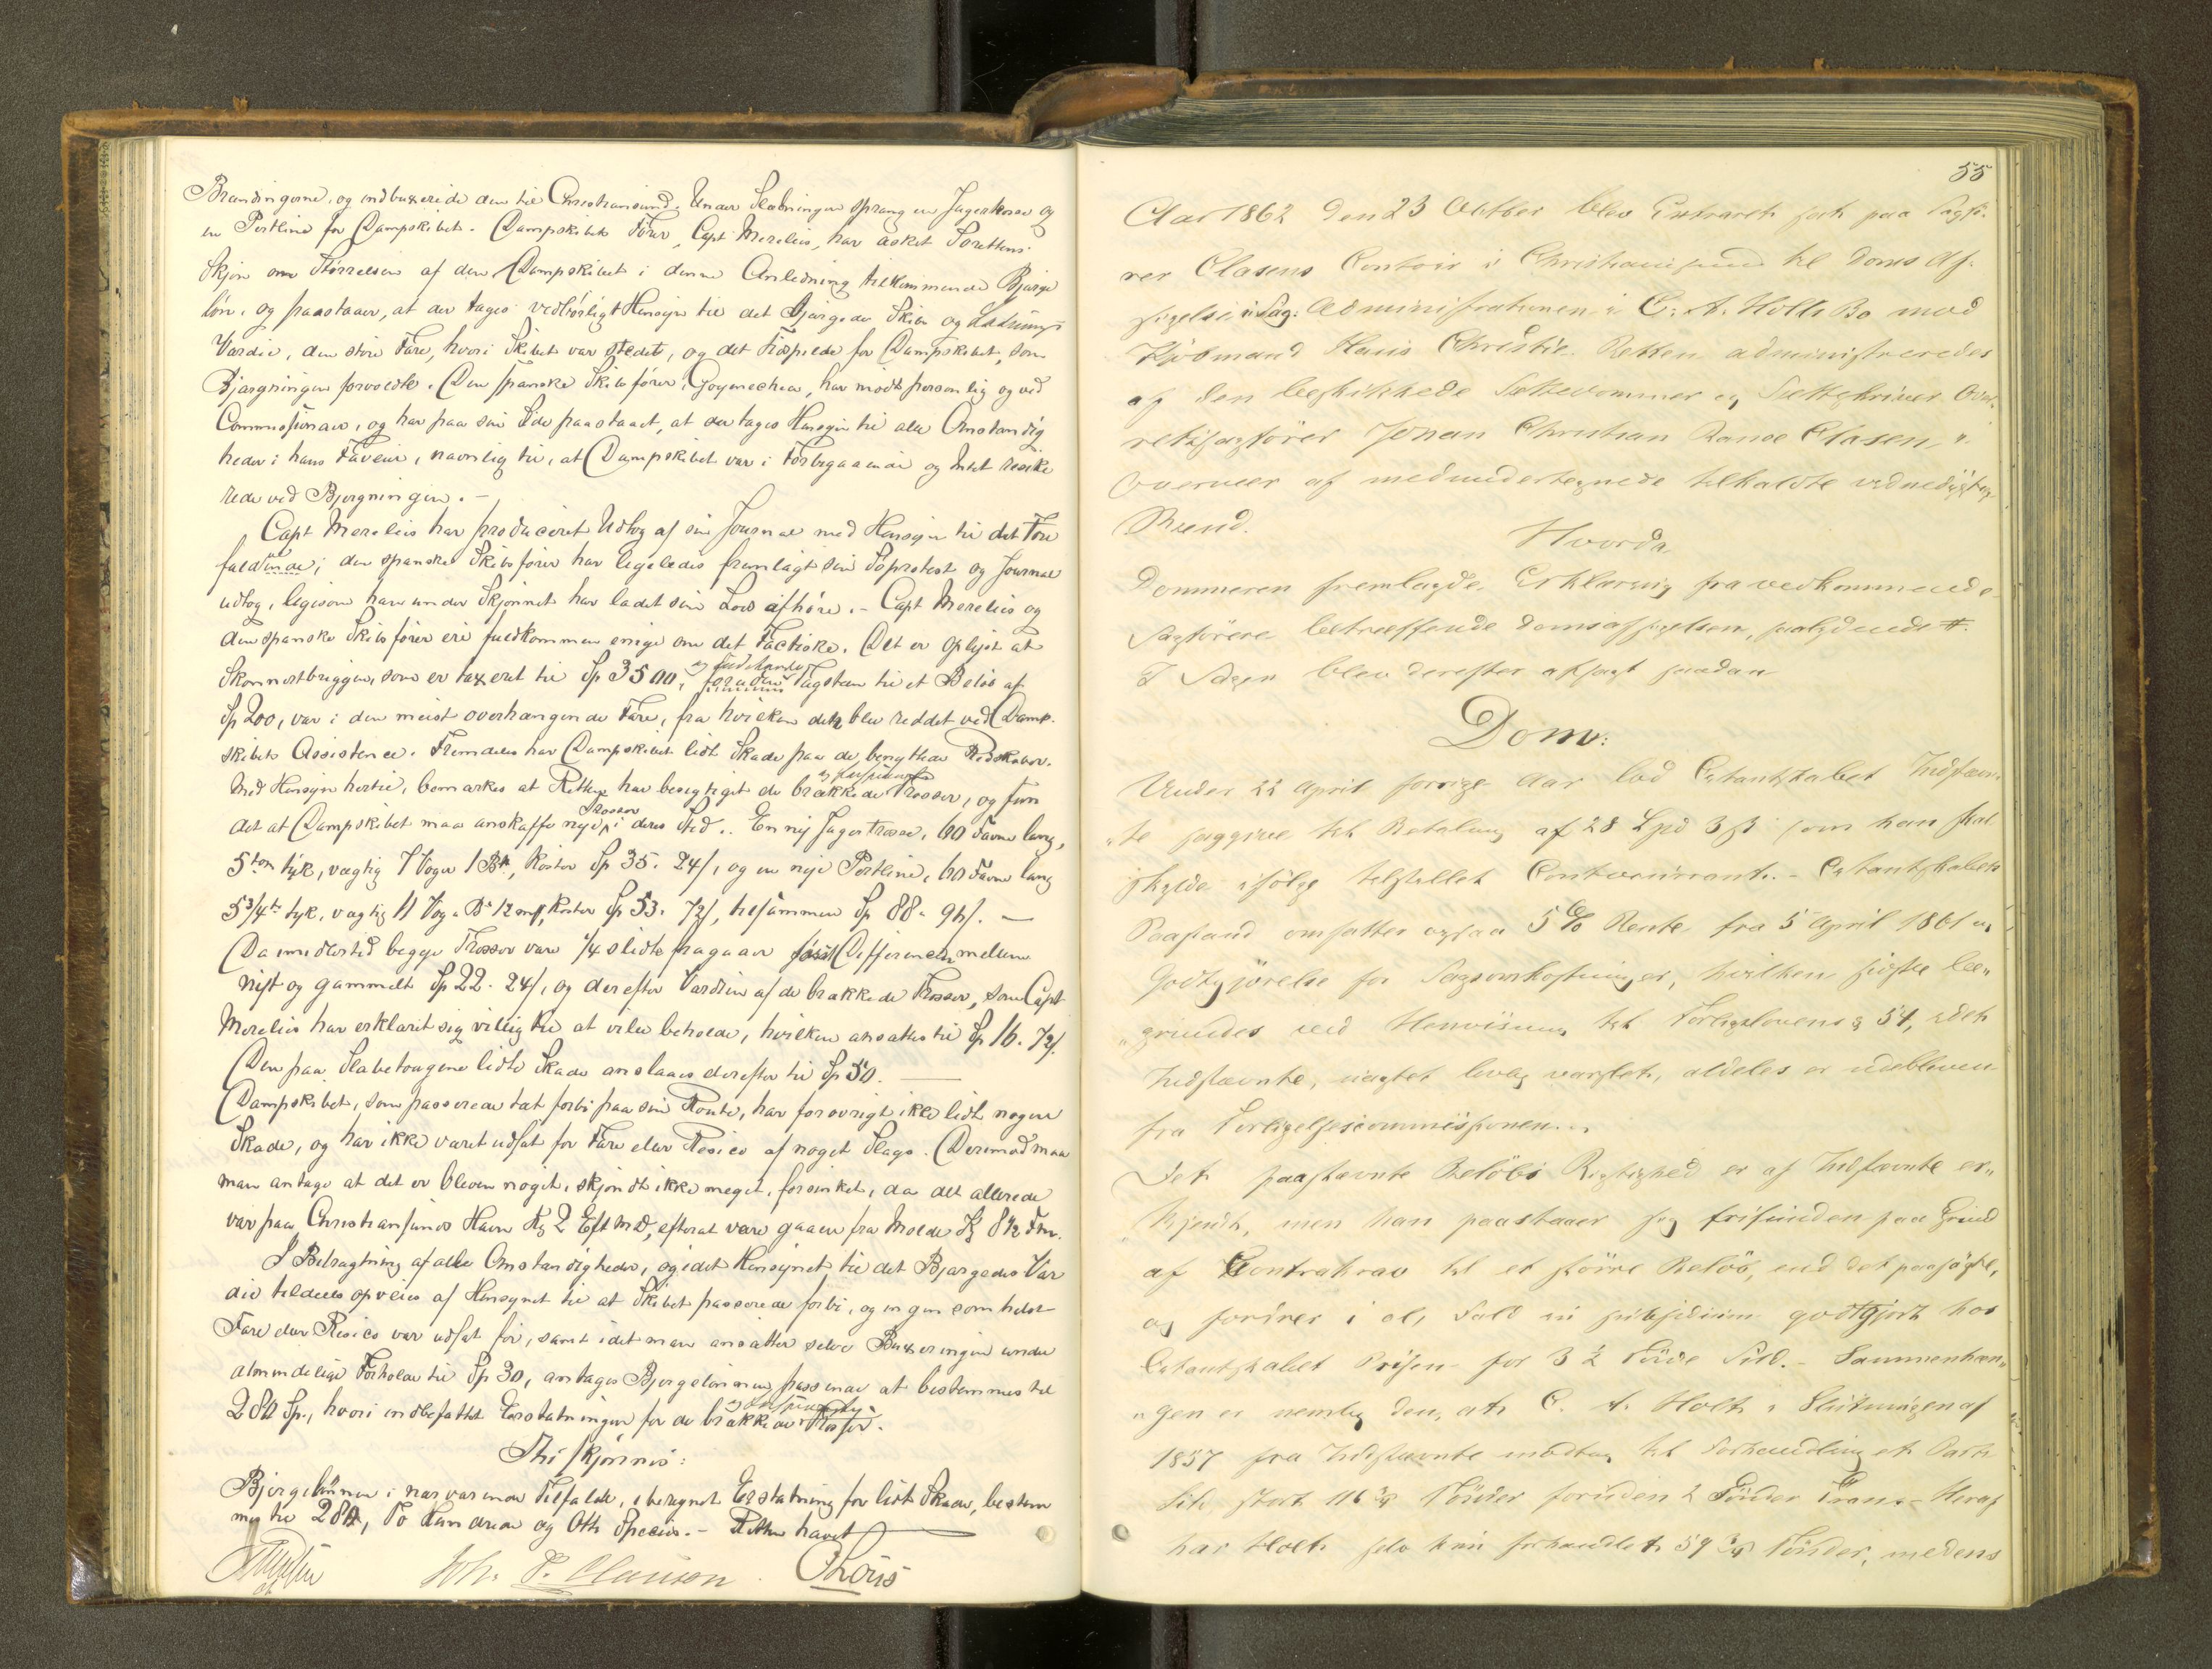 Brændingerne, og indbuxerede den til Christiansund. Under Slæbningen sprang en Jagertrosse og
en Pertline for Dampskibet. Dampskibets Fører, Capt. Merelius, har æsket Sørettens
Skjøn om Størrelsen af den Dampskibet i denne Anledning tilkommende Bjærge
løn, og paastaaer, at der tages vedbørligt Hensyn til det Bjærgede Skibs og Ladnings
Værdie, den store Fare, hvori Skibet var stedet, og det Tidsspilde for Dampskibet, som
Bjærgningen forvoldte. Den spanske Skibsfører, Goyenechea, har mødt personlig og ved
Commissionair, og har paa sin Side paastaaet, at der tages Hensyn til alle Omstændig
heder i hans Faveur, navnlig til, at Dampskibet var i Forbigaaende og Intet resike
rede ved Bjergningen. -
Capt Merelius har produceret Udtog af sin Journal med Hensyn til det Fore
faldende; den spanske Skibsfører har ligeledes fremlagt sin Søprotest og Journal
udtog, ligesom han under Skjønnet har ladet sin Lods afhøre. - Capt Merelius og
den spanske Skibsfører ere fuldkommen enige om det Factiske. Det er oplyst at
Skonnertbriggen, som er taxeret til Sp 3500, foruden Tagsten til et Beløb af
Sp 200, var i den meest overhængende Fare, fra hvilken det blev reddet ved Damp-
skibets Assistence. Fremdeles har Dampskibet lidt Skade paa de benyttede Redskaber.
Med Hensyn hertil, bemærkes at Retten har besigtiget de brækkede Trosser, og fun
det at Dampskibet maa anskaffe nye Trosser i deres Sted. En ny Jagertrosse, 60 Favne lang,
5 tom tyk, vægtig 7 Voger 1 Bp, koster Sp 35. 24/, og en nye Pertline, 60 Favne lang
5 3/4 t tyk, vægtig 11 Vog. koster Sp 53. 72/, tilsammen Sp 88 " 96/. -
Da imidlertid begge Trosser vare 1/4 slidte fragaaer først Differencen mellem
nyt og gammelt Sp 22. 24/, og derefter Værdien af de brækkede Trosser, som Capt
Merelius har erklæret sig villig til at ville beholde, hvilken ansættes til Sp 16. 72/.
Den paa Slæbetougene lidte Skade anslaaes derefter til Sp 50. -
Dampskibet, som passerede tæt forbi paa sin Route, har forøvrigt ikke lidt nogen
Skade, og har ikke været udsat for Fare eller Resico af noget Slags. Derimod maa
man antage at det er bleven noget, skjøndt ikke meget, forsinket, da det allerede
var paa Christiansunds Havn Kl 2 Eft Md, efterat være gaaen fra Molde Kl 8 1/2 Fm.
I Betragtning af alle Omstændigheder, og idet Hensynet til det Bjærgedes Vær
die tildeels opveies af Hensynet til at Skibet passerede forbi, og ingen somhelst
Fare eller Resico var udsat for, samt idet man ansætter selve Buxeringen under
almindelige Forholde til Sp 30, antages Bjergelønnen passende at bestemmes til
280 Sp., hvori indbefattet Erstatningen for de brækkede Trosser.
Thi skjønnes:
Bjergelønnen i nærværende Tilfælde, iberegnet Erstatning for lidt Skade, bestem
mes til 280, To Hundrede og Otti Specier. - Retten hævet
Joh. P. Clausen. Thoris
55
Aar 1862 den 23 Oktober blev Extraret sat paa Sagfø-
rer Clasens Contoir i Christiansund til Doms Af-
sigelse i Sag: Administrationen i C. A. Holts Bo mod
Kjøbmand Hans Christie. Retten administreredes
af den beskikkede Sættedommer og Sætteskriver Over-
retssagfører Johan Christian Ranoe Clasen, i
Overvær af medundertegnede tilkaldte vidnedygtige
Mænd.
Hvorda
Dommeren fremlagde Erklæring fra vedkommende
Sagførere betræffende Domsafsigelsen, saalydende #.
I Sagen blev derefter afsagt saadan
Dom:
Under 22 April forrige Aar lod Citantskabet Indstævn-
"te saggive til Betaling af 28 Spd 3 ß som han skal
skylde ifølge tilstillet Contocourant. - Citantskabets
Paastand omfatter ogsaa 5 % Rente fra 5 April 1861 og
Godtgjørelse for Sagsomkostninger, hvilken sidste be-
"grundes ved Henviisning til Forligslovens § 54, idet
Indstævnte, uagtet lovlig varslet, aldeles er udebleven
fra Forligelsescommissionen.
Det paastævnte Beløbs Rigtighed er af Indstævnte er-
"kjendt, men han paastaaer sig frifunden paa Grund
af Contrakrav til et større Beløb, end det paasøgte,
og fordrer i al Fald in subsidium godtgjort hos
Citantskabet Prisen for 3 1/2 Tønde Sild. - Sammenhæn-
"gen er nemlig den, at C. A. Holt i Slutningen af
1857 fra Indstævnte modtog til Forhandling et Parti
Sild stort 116 3/4 Tønder foruden 2 Tønder Tran. - Heraf
har Holt selv kun forhandlet 59 3/4 Tønder, medens